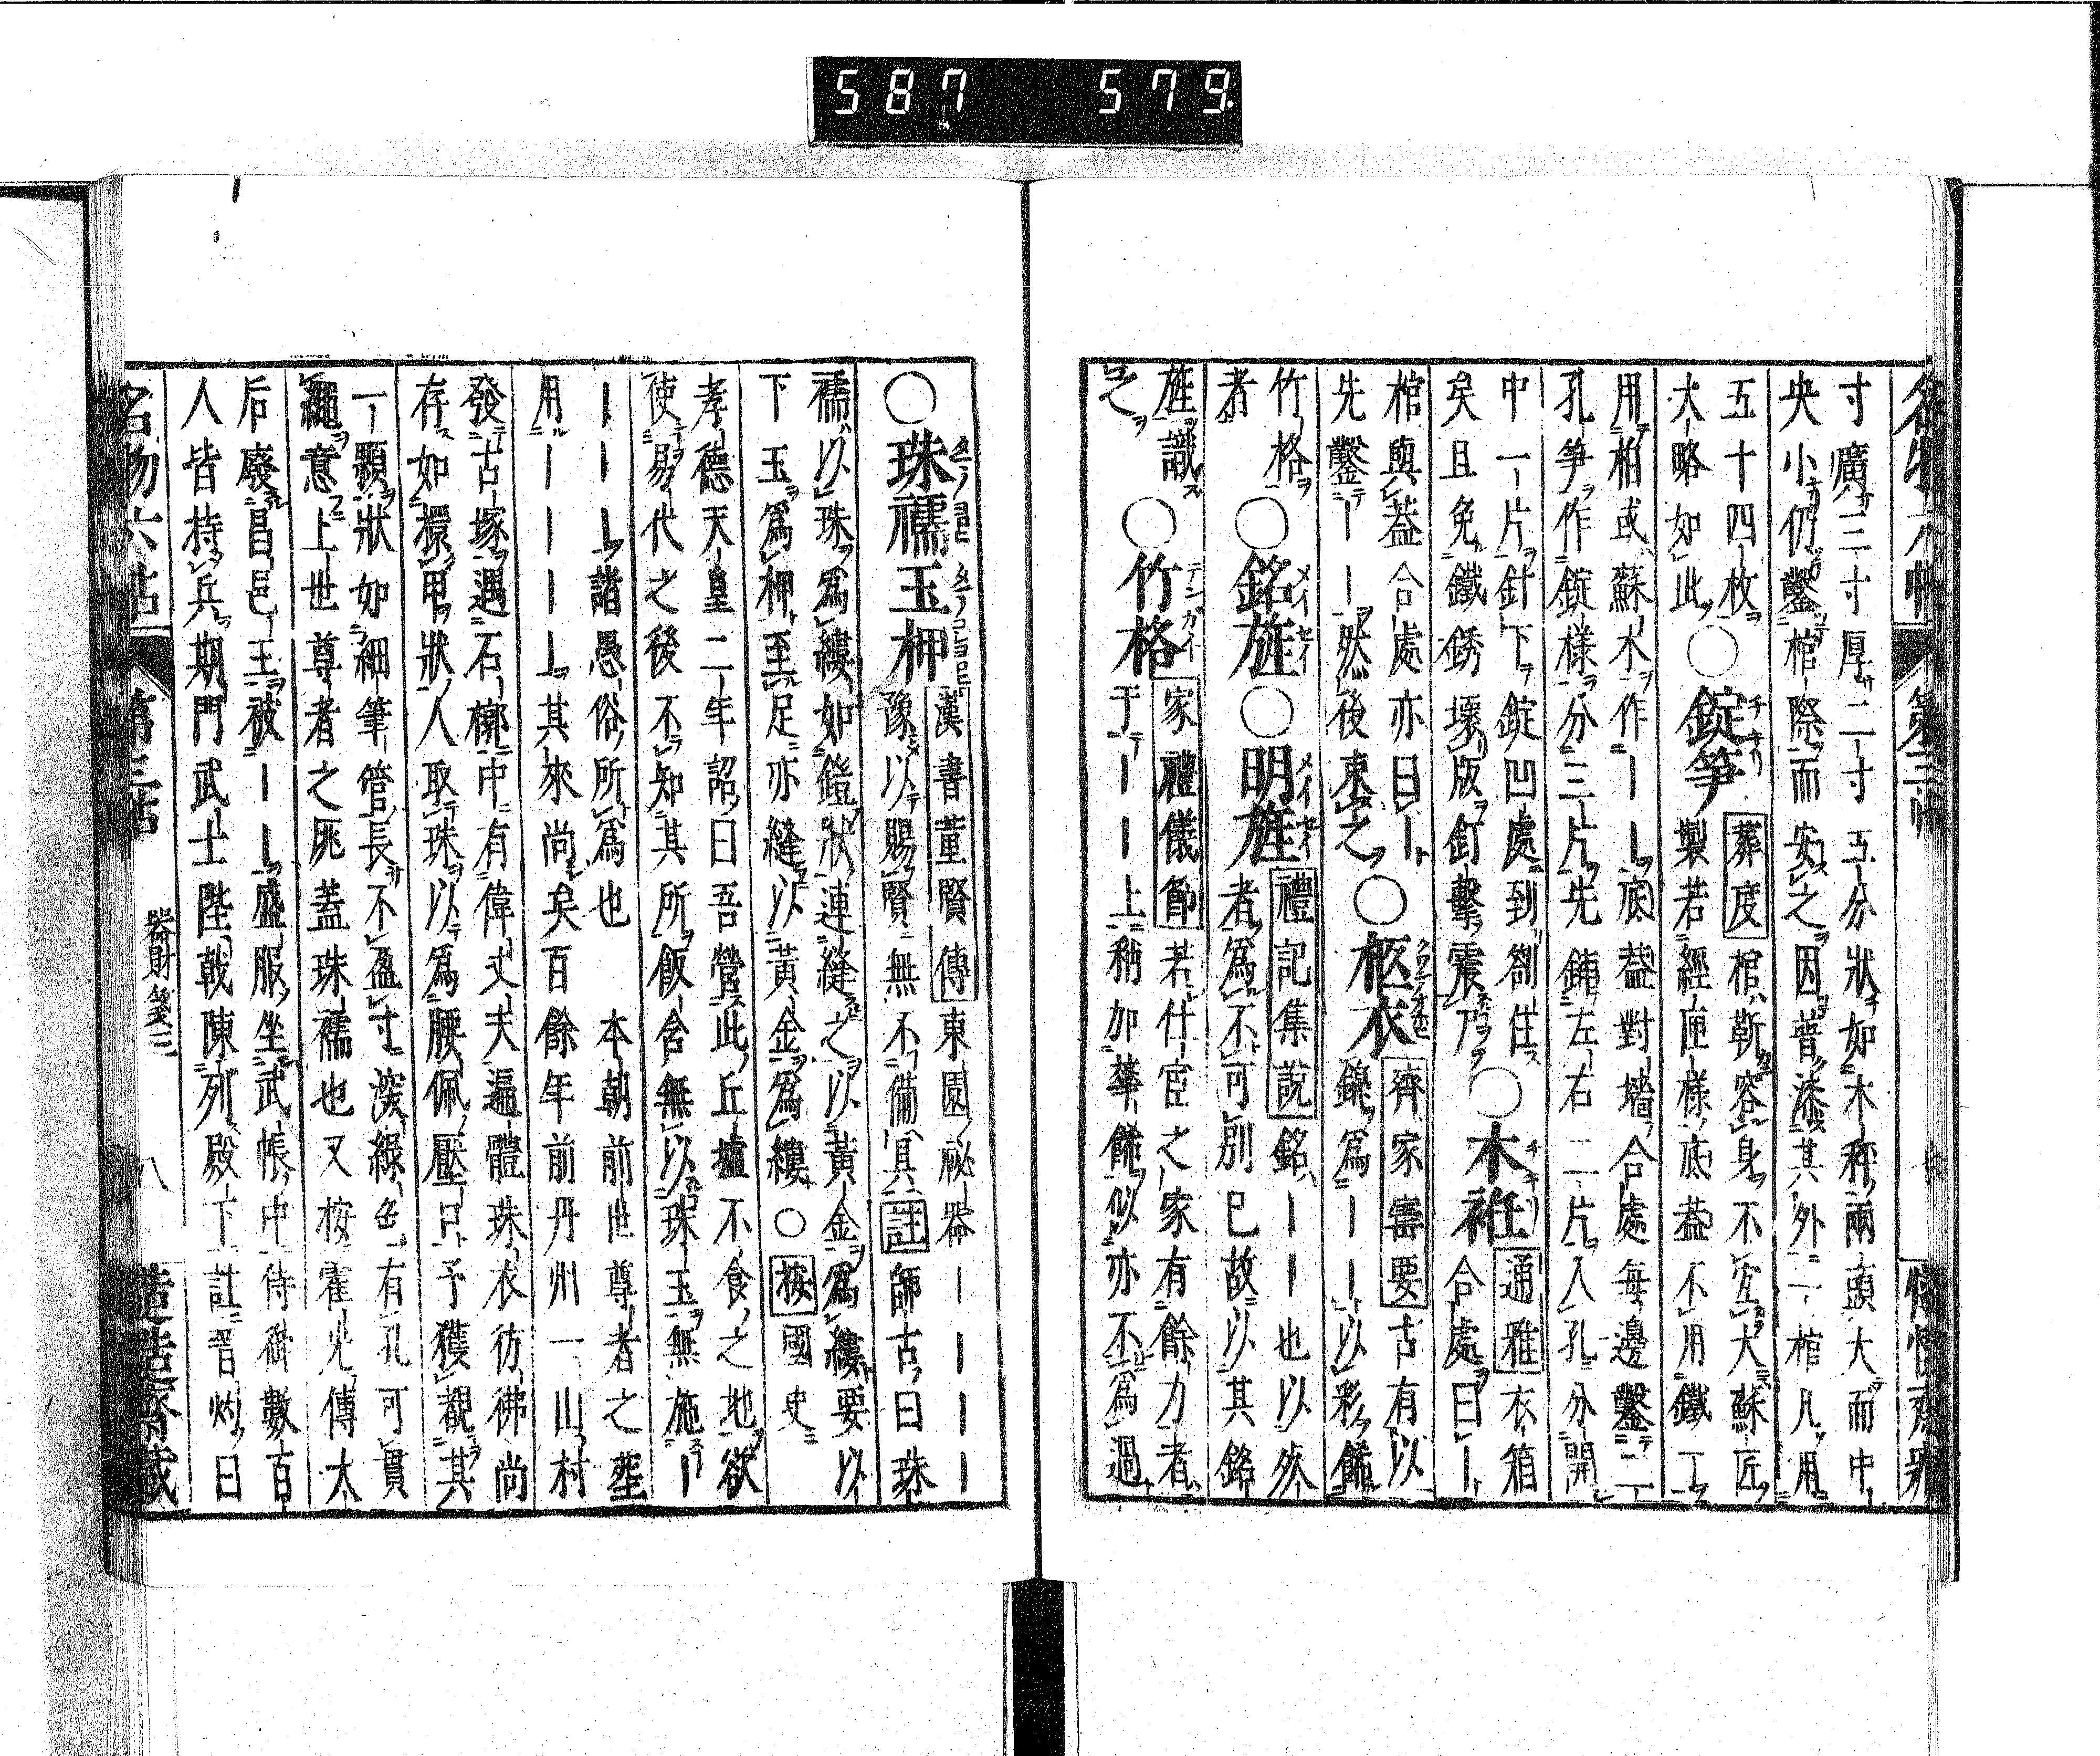 587 579
寸廣三寸厚二寸五分狀如木稱兩頭大而中
央小仍鑿棺際而安之因普漆其外一棺凡用
五十四枚
大略如此 ○錠笋 葬度 棺斲容身不宜大蘇匠
製若經匣樣底蓋不用鐵丁
用柏或蘇木作ーー底蓋對墻合處每邊鑿二
孔笋作錠樣分三片先鋪左右二片入孔分開
中一片針下錠凹處到劄住
矣且免鐵銹壞版釘擊震尸 ○木衽 通雅 衣箱
合處曰ー
棺與蓋合處亦曰ー
先鑿ーー然後束之 ○柩衣 齊家寶要 古有以
錦爲ーー以彩餙
竹格
者 ○銘旌○明旌 禮記集說 銘ーー也以死
者爲不可別已故以其銘
旌識
之 ○竹格 家禮儀節 若仕宦之家有餘力者
于ーー上稍加華餙似亦不爲過
○珠襦玉柙 漢書董賢傳 東園祕器ーーーー
豫以賜賢無不備具 註 師古曰珠
襦以珠爲縷如鎧狀連縫之以黃金爲縷要以
下玉爲柙至足亦縫以黃金爲縷○ 按 國史
孝德天皇二年詔曰吾營此丘墟不食之地欲
使易代之後不知其所飯含無以珠玉無施ー
ーーー諸愚俗所爲也 本朝前世尊者之葬
用ーーーー其來尚矣百餘年前丹州一山村
發古塚遇石槨中有偉丈夫遍體珠衣彷彿尚
存如擐甲狀人取珠以爲腰佩壓口予獲觀其
一顆狀如細筆管長不盈寸深綠色有孔可貫
繩意上世尊者之匝蓋珠襦也又按霍光傳太
后廢昌邑王被ーー盛服坐武帳中侍御數百
人皆持兵期門武士陛戟陳列殿下註晋灼曰
名物六帖 第三帖 器財箋三 八